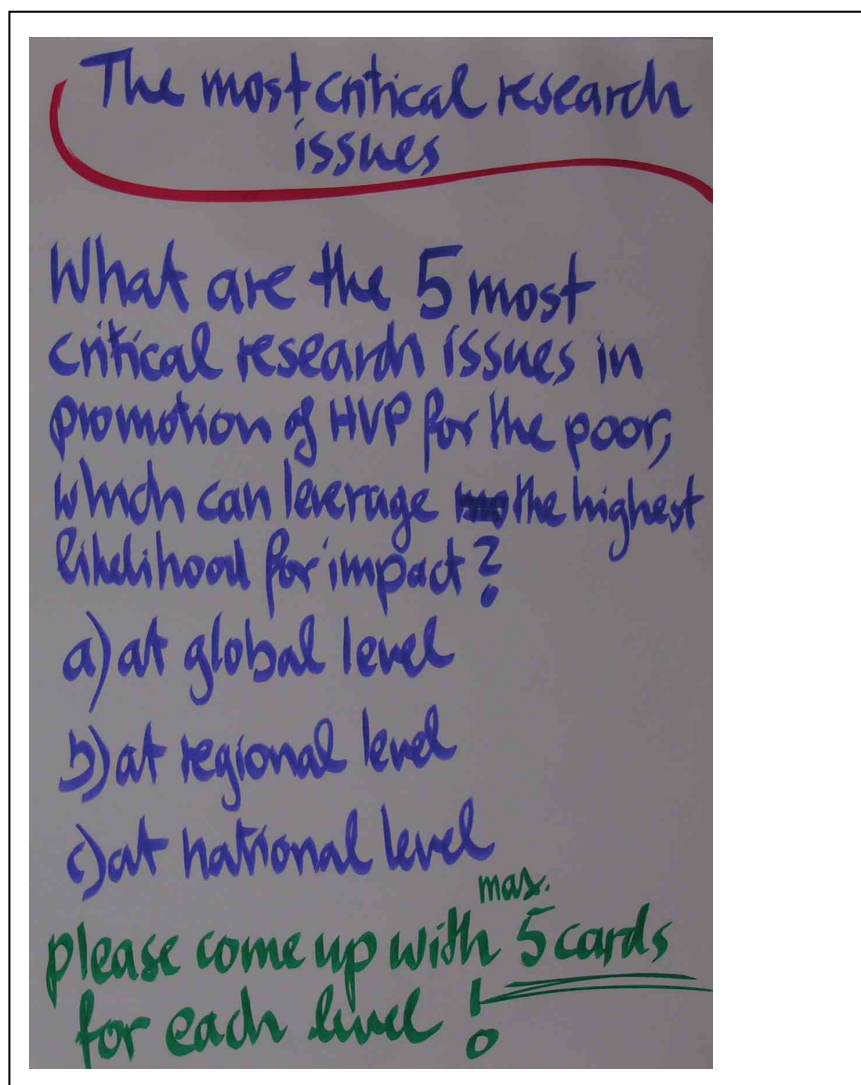 The most critical research
issues
What are the 5 most
critical research issues in
promotion of HVP for the poor,
which can leverage the highest
likelihood for impact?
a) at global level
b) at regional level
c) at national level
max.
please come up with 5 cards
for each level !